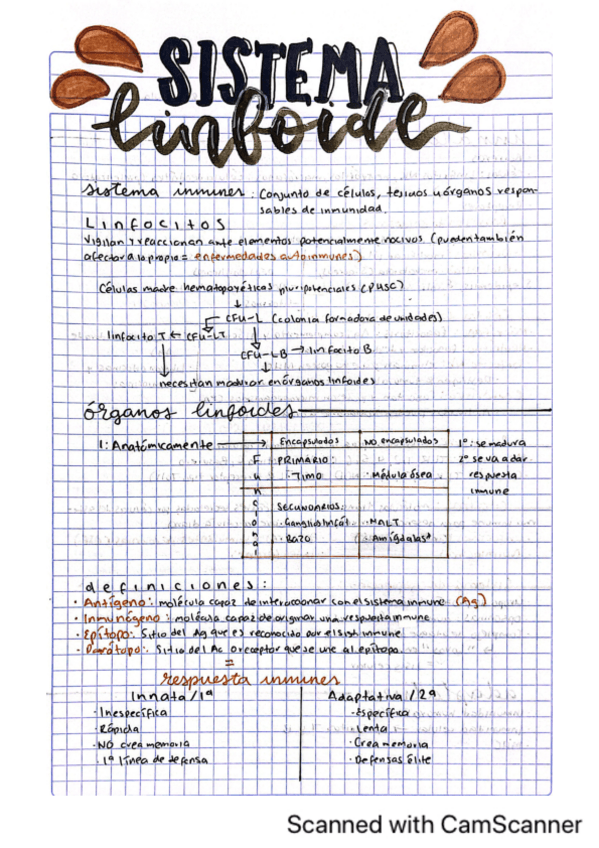 SISTEMA
linfoide
sistema inmunes: Conjunto de células, tejidos u órganos respon-
sables de inmunidad.
Linfocitos
vigilan y reaccionan ante elementos potencialmente nocivos (pueden también
afectar a lo propio = enfermedades autoinmunes)
Células madre hematopoyéticas pluripotenciales (PHSC)
↓
CFU-L (colonia formadora de unidades)
linfocito T ← CFU-LT
CFU-LB → linfocito B
↓
necesitan madurar en órganos linfoides
órganos linfoides
1: Anatómicamente → Encapsulados No encapsulados 1º: se madura
Funcional PRIMARIO: 2º se va a dar
· Timo · Médula ósea respuesta
inmune
SECUNDARIOS:
· Ganglios linfát · MALT
· Bazo · Amígdalas*
definiciones:
· Antígeno: molécula capaz de interaccionar con el sistema inmune (Ag)
· Inmunógeno: molécula capaz de originar una respuesta inmune
· Epítopo: Sitio del Ag que es reconocido por el sist inmune
· Parátopo: Sitio del Ac o receptor que se une al epítopo.
=
respuesta inmunes
Innata/1ª Adaptativa/2ª
· Inespecífica · Específica
· Rápida · Lenta
· NO crea memoria · Crea memoria
· 1ª línea de defensa · Defensas élite
Scanned with CamScanner